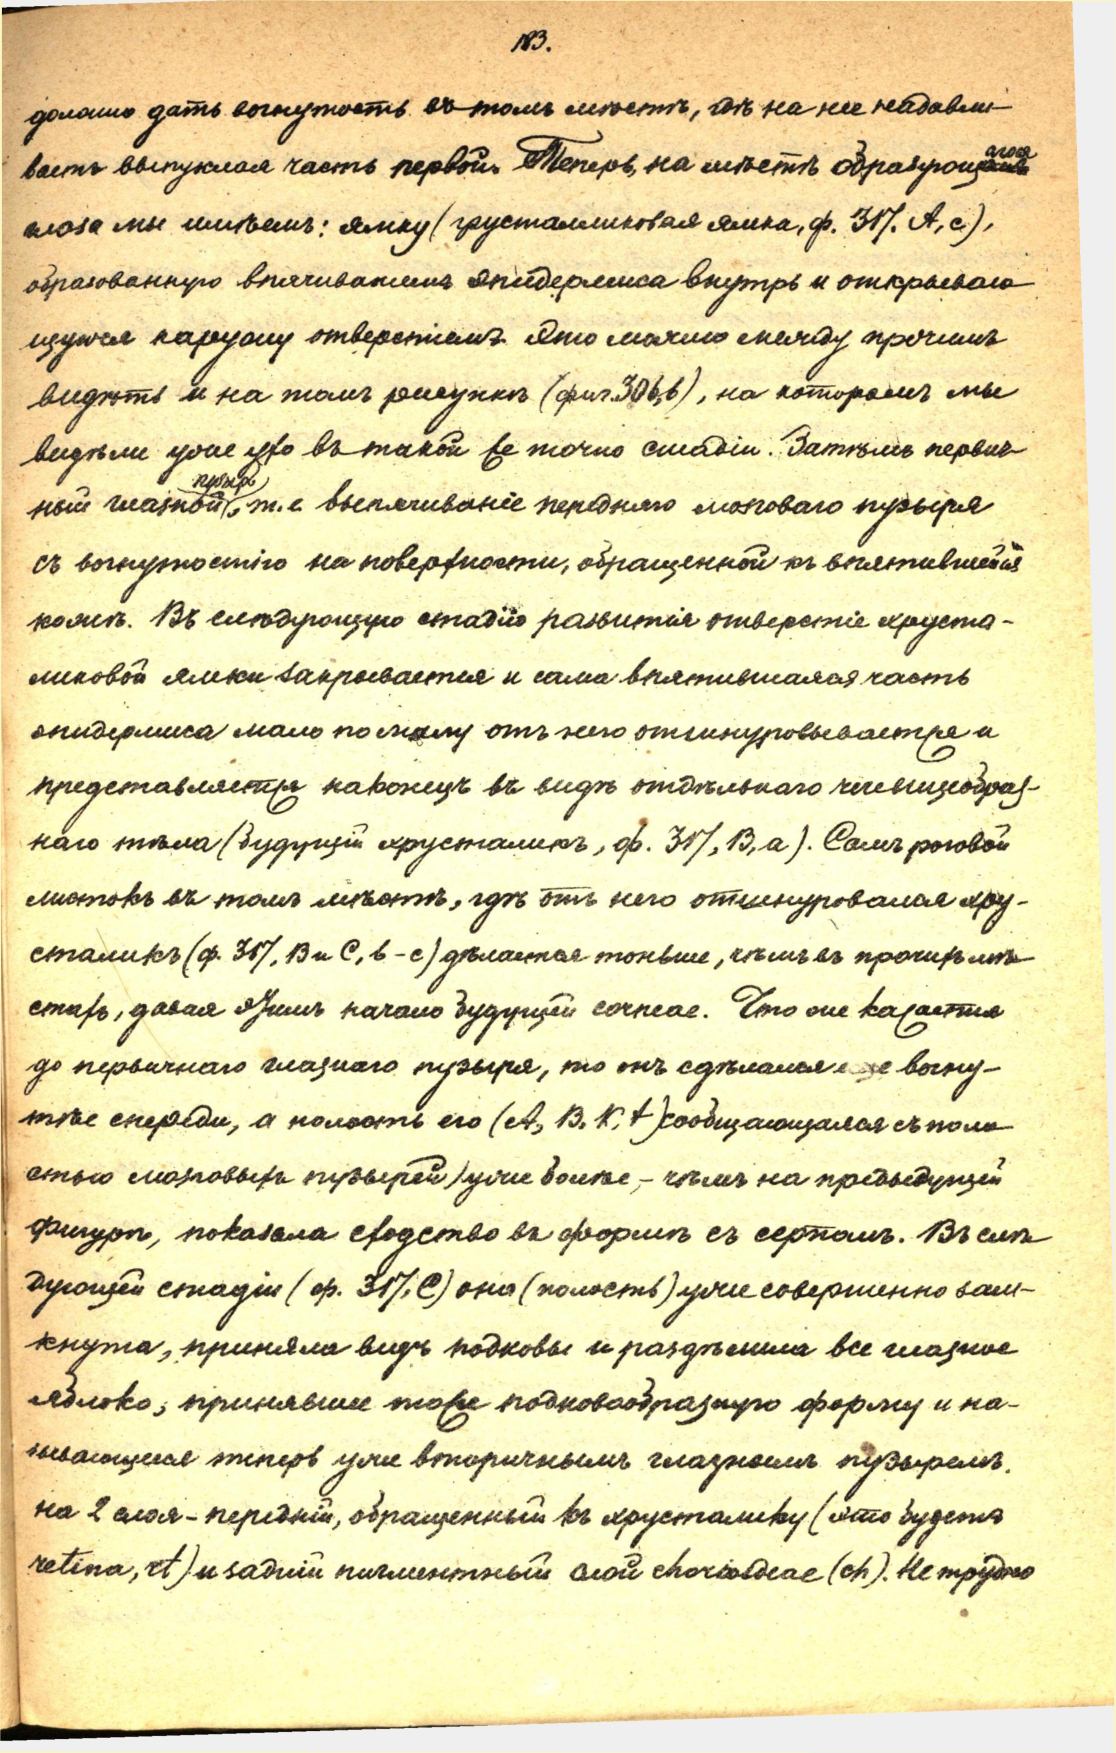 183.
должно дать вогнутость въ томъ мѣстѣ, гдѣ на нее надавли-
ваетъ выпуклая часть первой. Теперь, на мѣстѣ образующагося
глаза мы имѣемъ: ямку (хрусталиковая ямка, ф. 317. А, с),
образованную впячиваніемъ эпидермиса внутрь и открываю
щуюся наружу отверстіемъ. Это можно между прочимъ
видѣть и на томъ рисункѣ (фиг. 306, b), на которомъ мы
видѣли ухо въ такой же точно стадіи. Затѣмъ первич-
ный глазной пузырь, т. е. выпячиваніе передняго мозговаго пузыря
съ вогнутостію на поверхности, обращенной къ впятившейся
кожѣ. Въ слѣдующую стадію развитія отверстіе хруста-
ликовой ямки закрывается и сама впятившаяся часть
эпидермиса мало по малу отъ него отшнуровывается и
представляется наконецъ въ видѣ отдѣльнаго чечевицеобраз-
наго тѣла (будущій хрусталикъ, ф. 317, В, а). Самъ роговой
листокъ въ томъ мѣстѣ, гдѣ отъ него отшнуровался хру-
сталикъ (ф. 317, В и С, b-c) дѣлается тоньше, чѣмъ въ прочихъ мѣ-
стахъ, давая этимъ начало будущей corneae. Что же касается
до первичнаго глазнаго пузыря, то онъ сдѣлался еще вогну-
тѣе спереди, а полость его (А, В. К, t) сообщающаяся съ поло-
стью мозговыхъ пузырей) уже болѣе, - чѣмъ на предыдущей
фигурѣ, показала сходство въ формѣ съ серпомъ. Въ слѣ-
дующей стадіи (ф. 317, С) она (полость) уже совершенно зам-
кнута, приняла видъ подковы и раздѣлила все глазное
яблоко, принявшее тоже подковообразную форму и на-
зывающееся теперь уже вторичнымъ глазнымъ пузыремъ.
на 2 слоя - передній, обращенный къ хрусталику (это будетъ
retina, rt) и задній пигментный слой chorioideae (ch). Не трудно